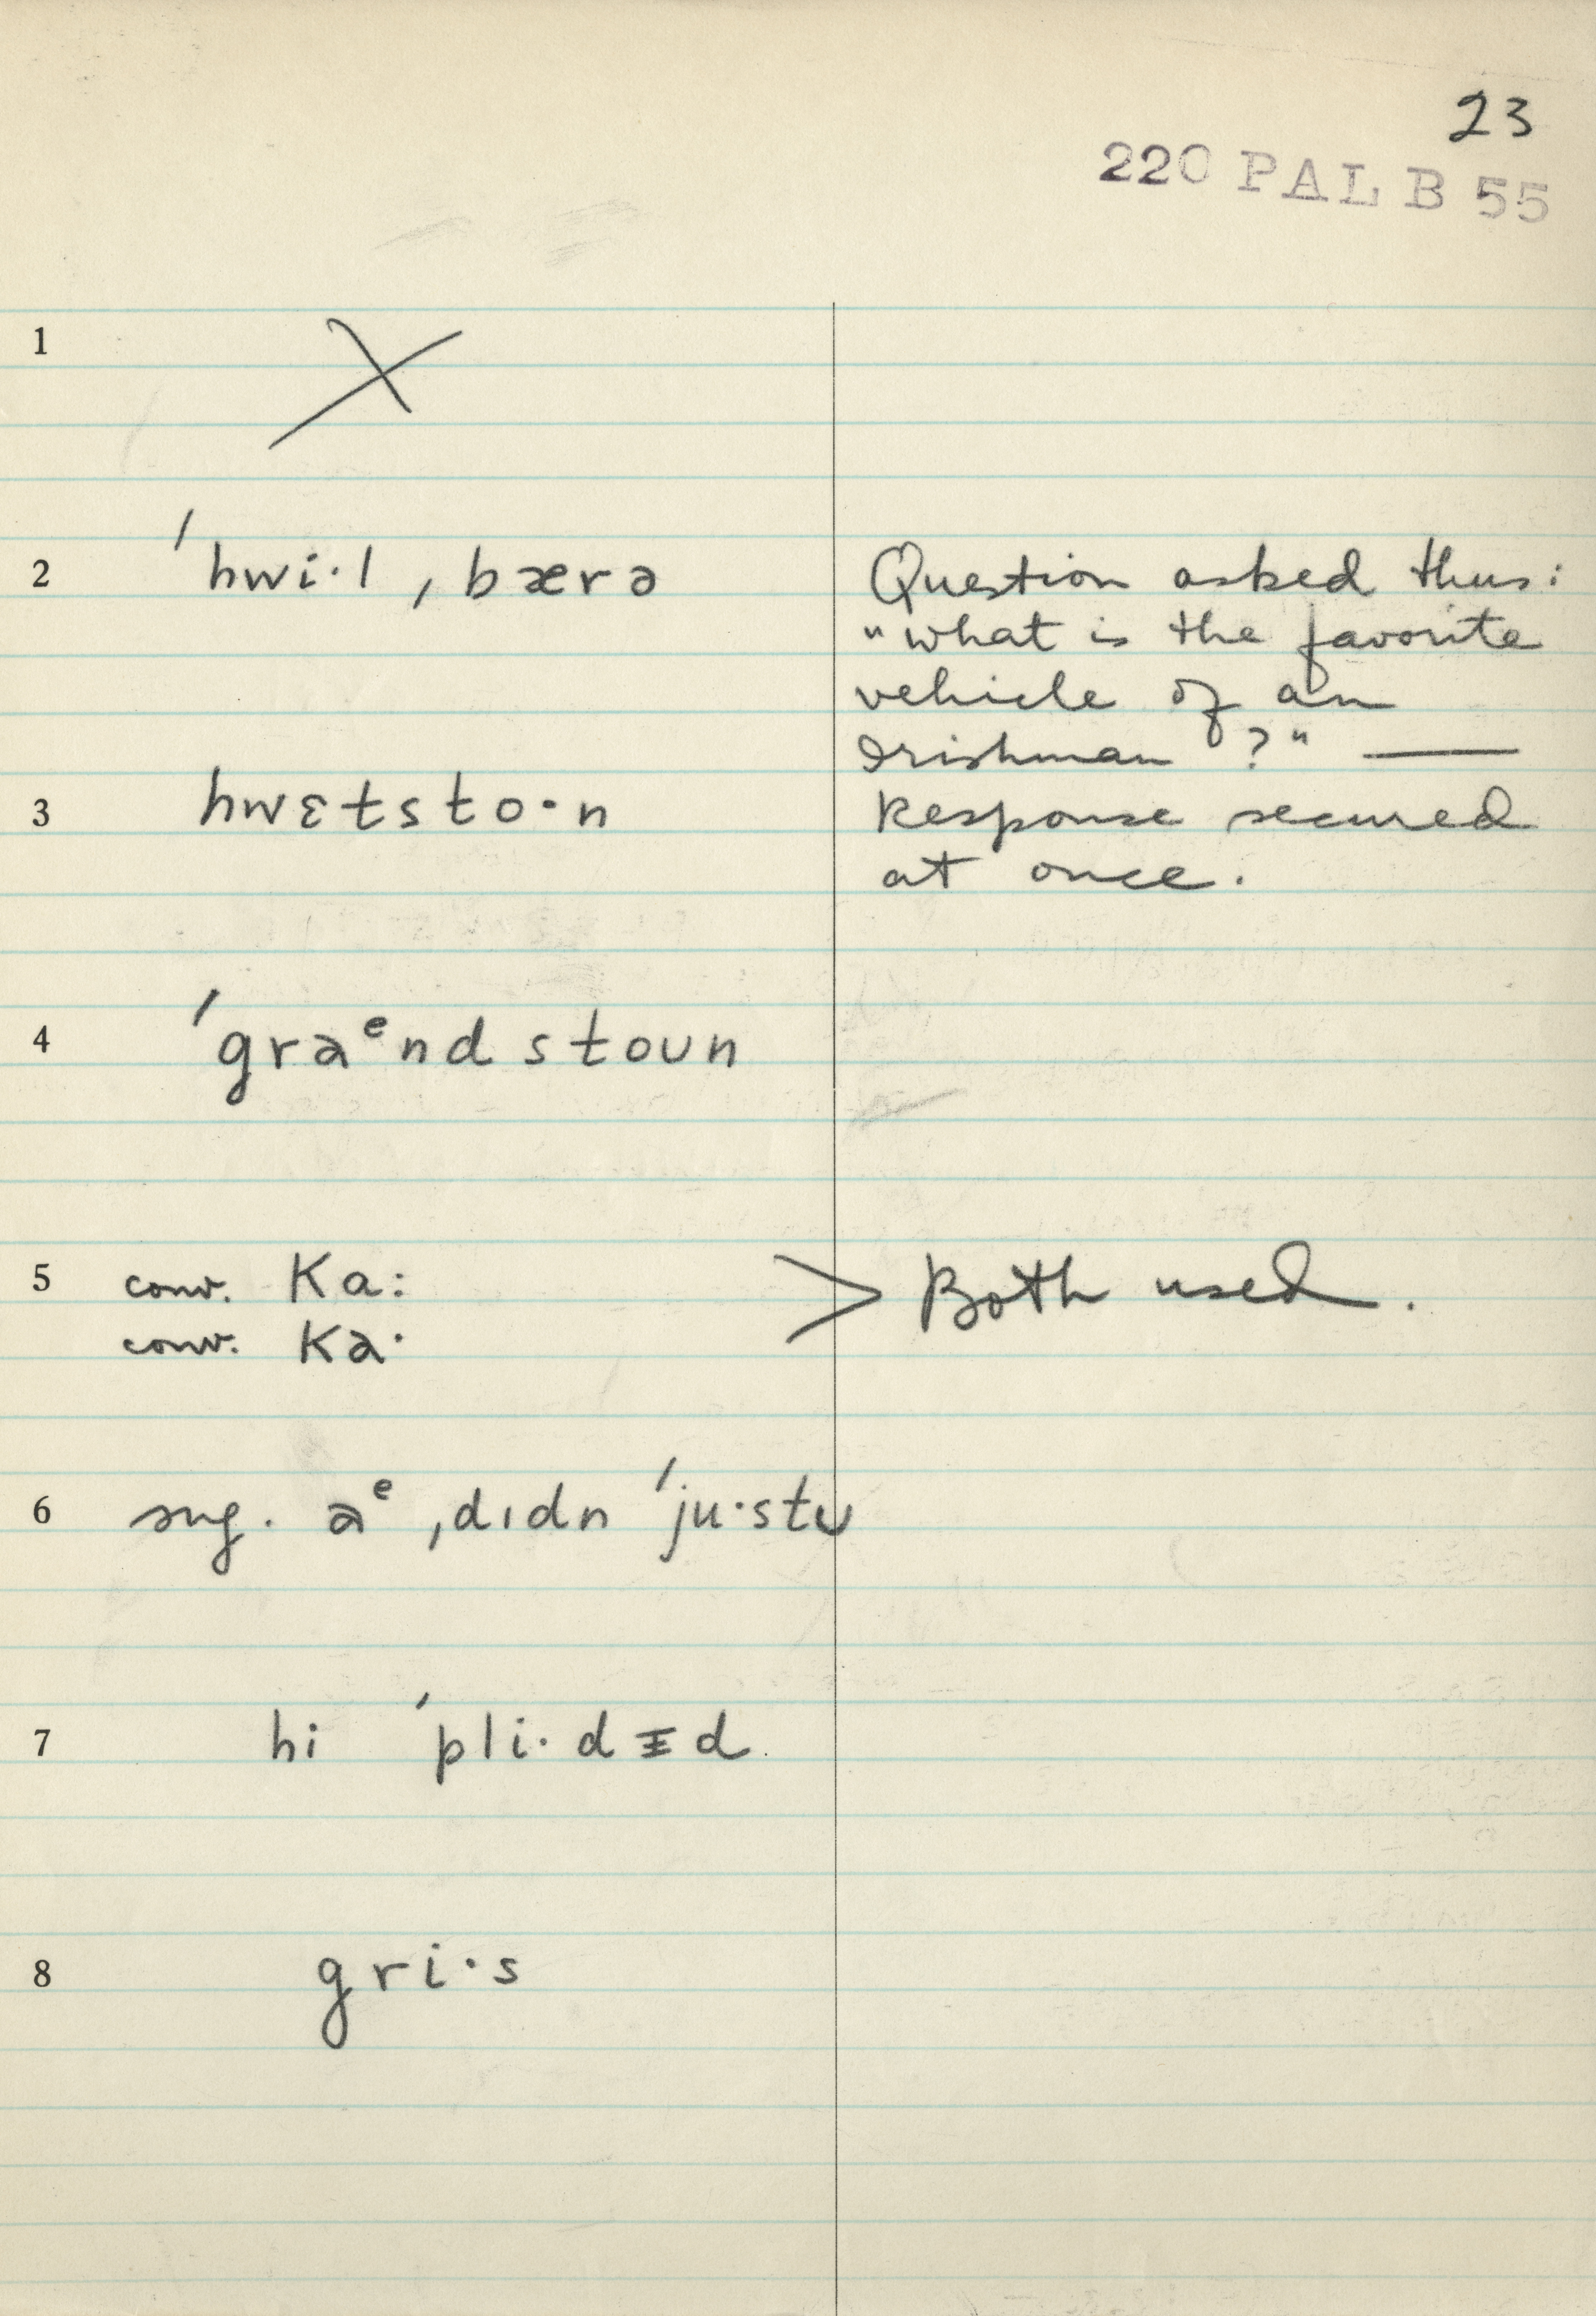 23
220 PAL B 55
1 X
2 ˈhwi·l ˌbærə
Question asked thus:
"What is the favorite
vehicle of an
Irishman ?" —
3 hwɛtsto·n
Response secured
at once.
4 ˈgraᵉndstoun
5 conv. Ka:
conv. Ka·
> Both used.
6 sug. aᵉ ˌdɪdn ˈju·stʊ
7 hi ˈpli·dɪd
8 gri·s